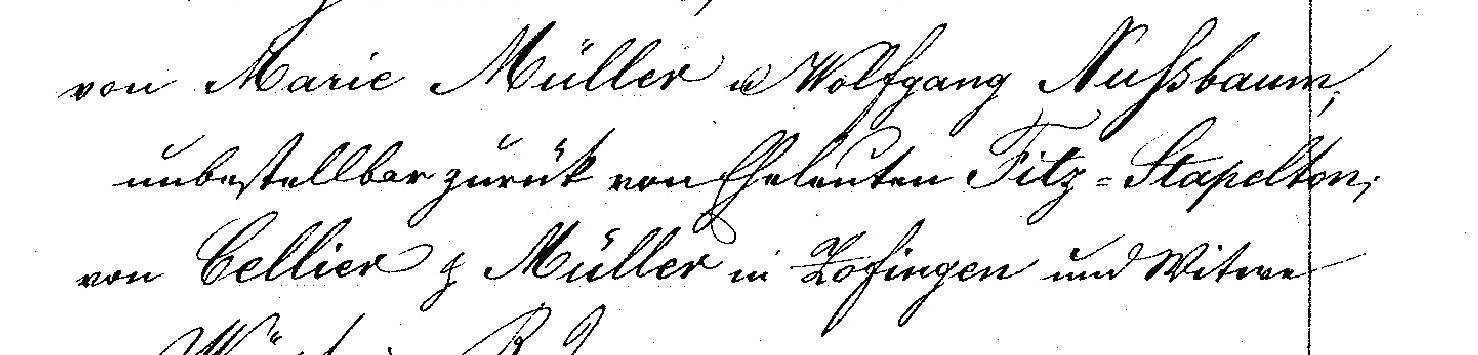 von Marie Müller u Wolfgang Nussbaum,
unbestellbar zurück von Eheleuten Fitz-Stapelton;
von Cellier & Müller in Zofingen und Witwe